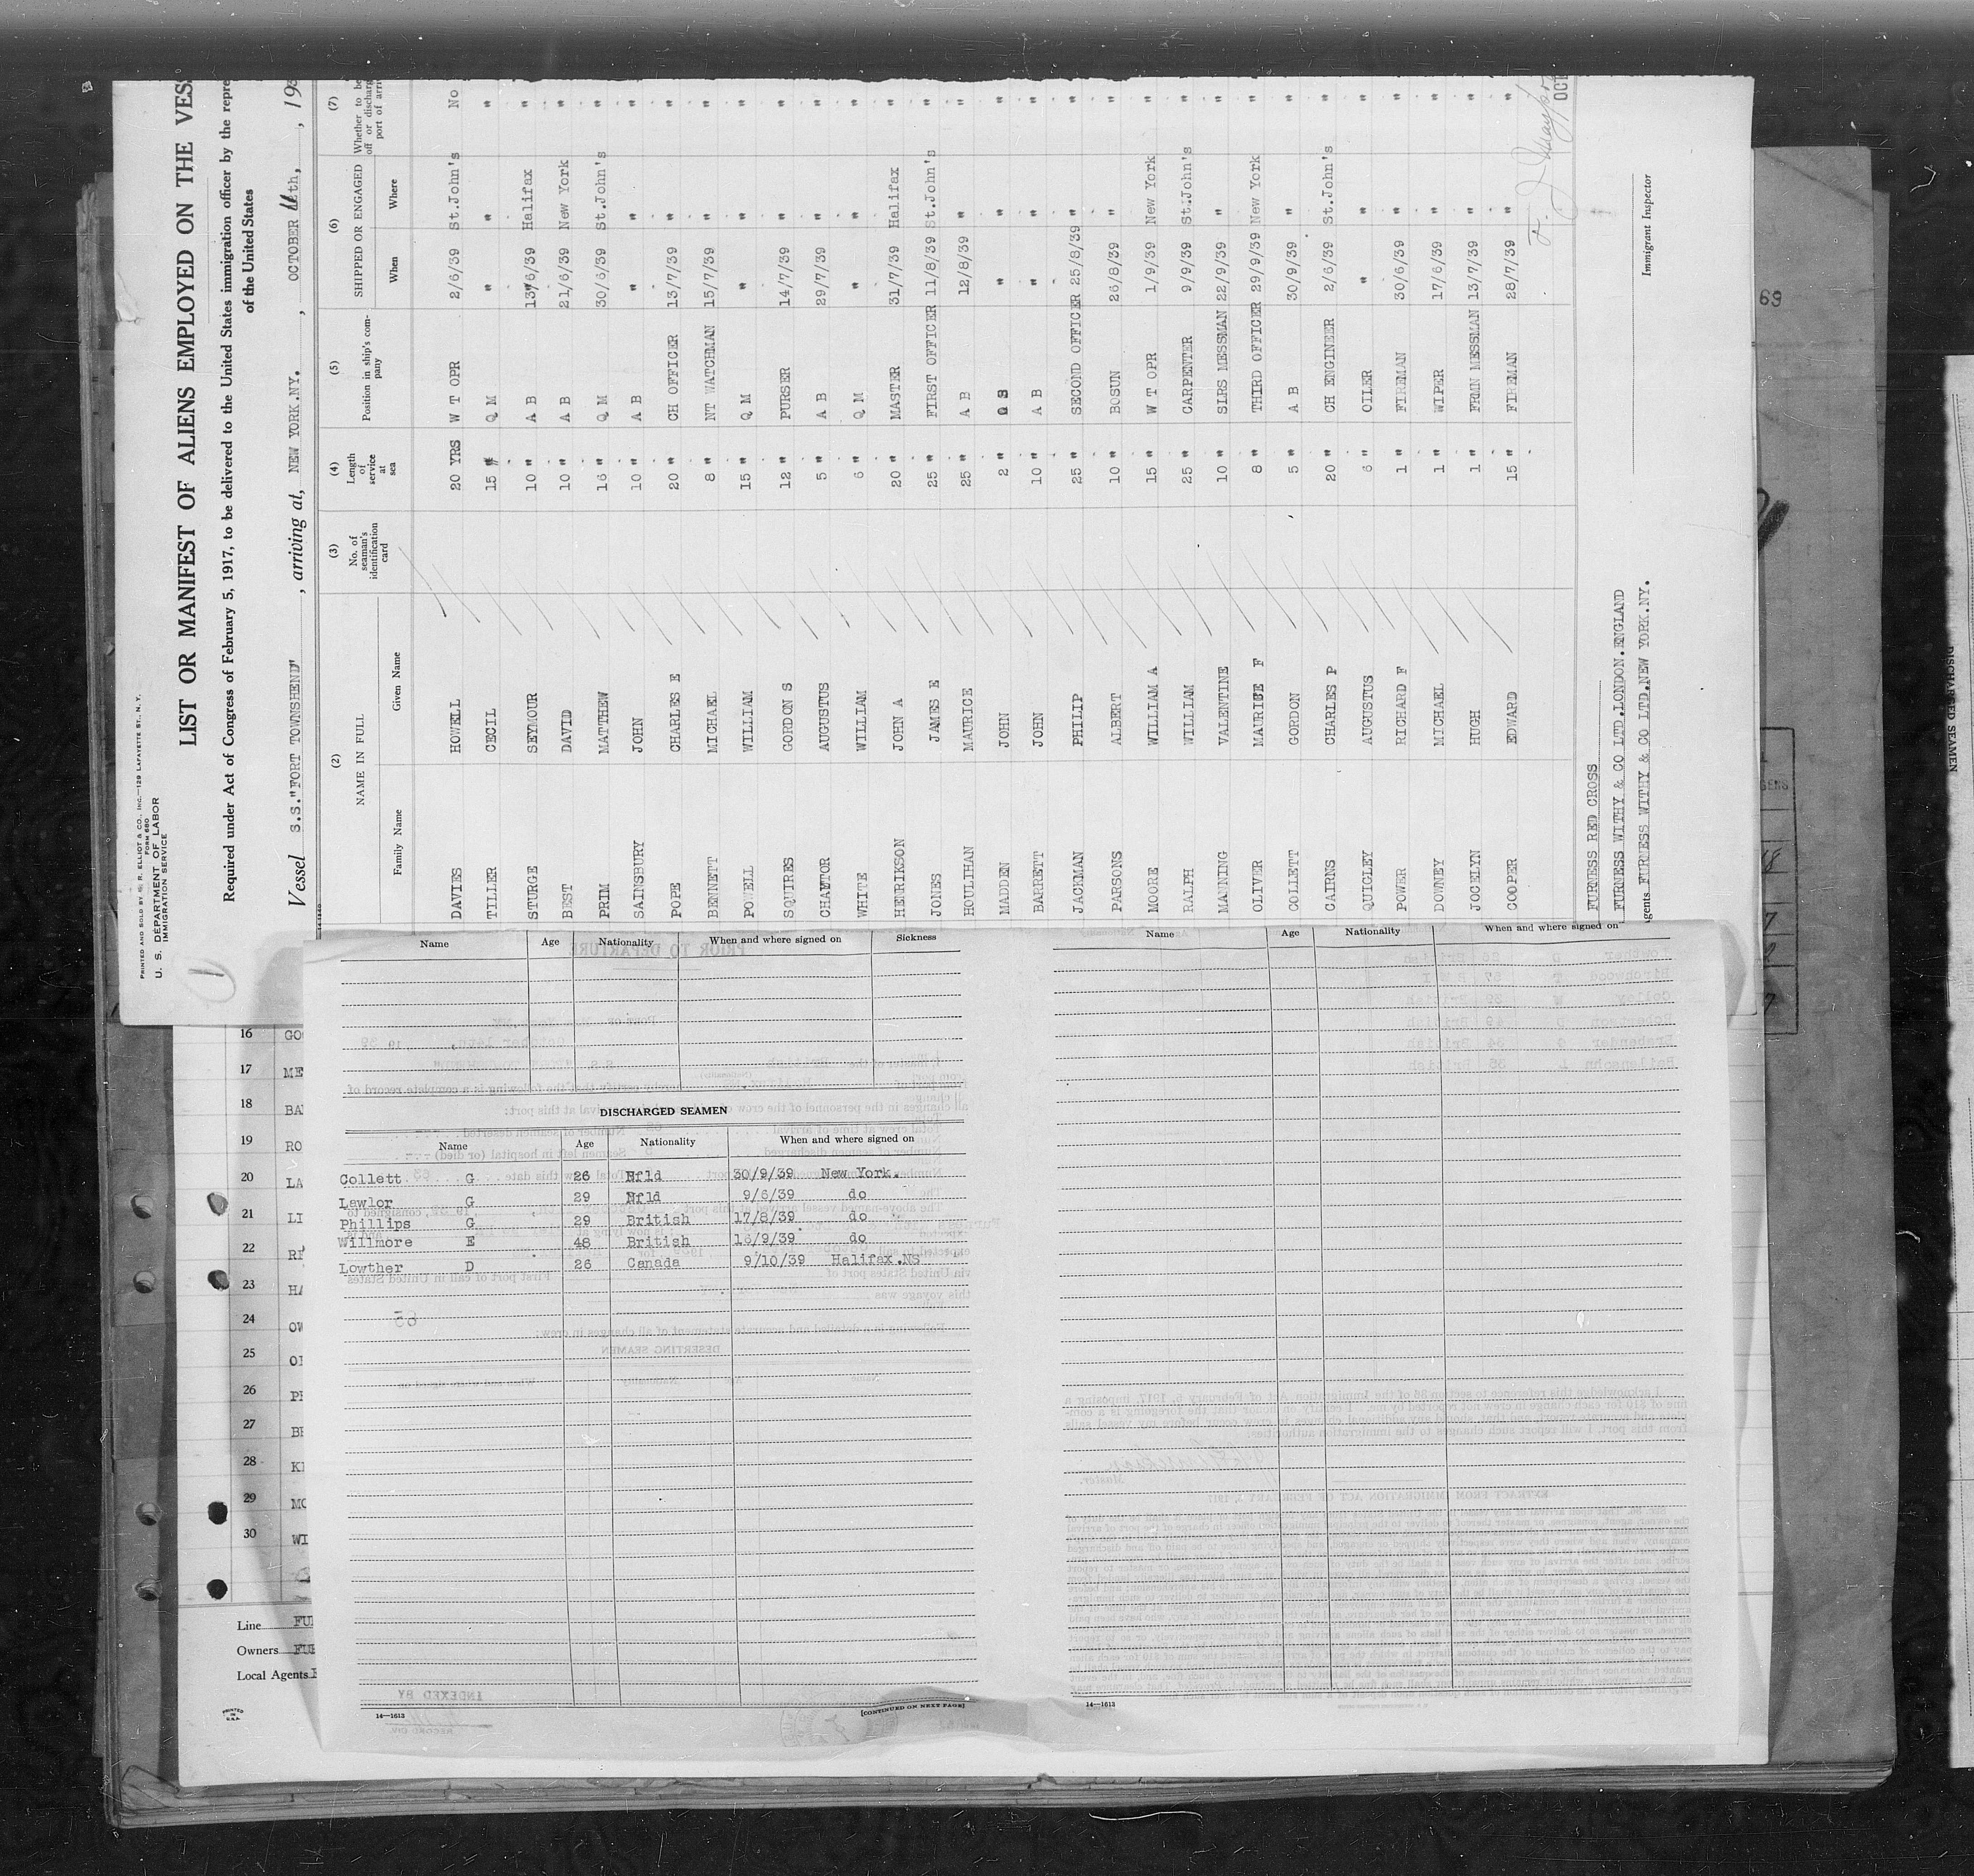 PRINTED AND SOLD BY E. R. ELLIOT & CO., INC.—129 LAFAYETTE ST., N. Y.
FORM 680
U. S. DEPARTMENT OF LABOR
IMMIGRATION SERVICE
LIST OR MANIFEST OF ALIENS EMPLOYED ON THE VES
Required under Act of Congress of February 5, 1917, to be delivered to the United States immigration officer by the repre
of the United States
Vessel S.S."FORT TOWNSHEND", arriving at, NEW YORK.NY., OCTOBER th, 193
(2) (3) (4) (5) (6) (7)
NAME IN FULL No. of seaman's identification card Length of service at sea Position in ship's company SHIPPED OR ENGAGED Whether to be
off or discharg
port of arri
Family Name Given Name When Where
DAVIES HOWELL 20 YRS W T OPR 2/6/39 St.John's No
TILLER CECIL 15 " Q M " " "
STURGE SEYMOUR 10 " A B 13/6/39 Halifax "
BEST DAVID 10 " A B 21/6/39 New York "
PRIM MATTHEW 16 " Q M 30/6/39 St.John's "
SAINSBURY JOHN 10 " A B " " "
POPE CHARLES E 20 " CH OFFICER 13/7/39 " "
BENNETT MICHAEL 8 " NT WATCHMAN 15/7/39 " "
POWELL WILLIAM 15 " Q M " " "
SQUIRES GORDON S 12 " PURSER 14/7/39 " "
CHAFTOR AUGUSTUS 5 " A B 29/7/39 " "
WHITE WILLIAM 6 " Q M " " "
HENRIKSON JOHN A 20 " MASTER 31/7/39 Halifax "
JONES JAMES E 25 " FIRST OFFICER 11/8/39 St.John's "
HOULIHAN MAURICE 25 " A B 12/8/39 " "
MADDEN JOHN 2 " O S " " "
BARRETT JOHN 10 " A B " " "
JACKMAN PHILIP 25 " SECOND OFFICER 25/8/39 " "
PARSONS ALBERT 10 " BOSUN 26/8/39 " "
MOORE WILLIAM A 15 " W T OPR 1/9/39 New York "
RALPH WILLIAM 25 " CARPENTER 9/9/39 St.John's "
MANNING VALENTINE 10 " SLRS MESSMAN 22/9/39 " "
OLIVER MAURICE F 8 " THIRD OFFICER 29/9/39 New York "
COLLETT GORDON 5 " A B 30/9/39 " "
CAIRNS CHARLES P 20 " CH ENGINEER 2/6/39 St.John's "
QUIGLEY AUGUSTUS 6 " OILER " " "
POWER RICHARD F 1 " FIREMAN 30/6/39 " "
DOWNEY MICHAEL 1 " WIPER 17/6/39 " "
JOCELYN HUGH 1 " FRMN MESSMAN 13/7/39 " "
COOPER EDWARD 15 " FIREMAN 28/7/39 " "
OCT
FURNESS RED CROSS
FURNESS WITHY & CO LTD.LONDON.ENGLAND
gents FURNESS WITHY & CO LTD.NEW YORK.NY.
Immigrant Inspector
Name Age Nationality When and where signed on Sickness
DISCHARGED SEAMEN
Name Age Nationality When and where signed on
Collett G 26 Nfld 30/9/39 New York.
Lawlor G 29 Nfld 9/6/39 do
Phillips G 29 British 17/8/39 do
Willmore E 48 British 16/9/39 do
Lowther D 26 Canada 9/10/39 Halifax.NS
14—1613
[CONTINUED ON NEXT PAGE]
Name Age Nationality When and where signed on
14—1613
16 GO
17 ME
18 BA
19 RO
20 LA
21 LI
22 RE
23 HA
24 OW
25 OL
26 PE
27 BE
28 KI
29 MO
30 WI
Line FU
Owners FUR
Local Agents
PRINTED IN U.S.A.
69
DISCHARGED SEAMEN